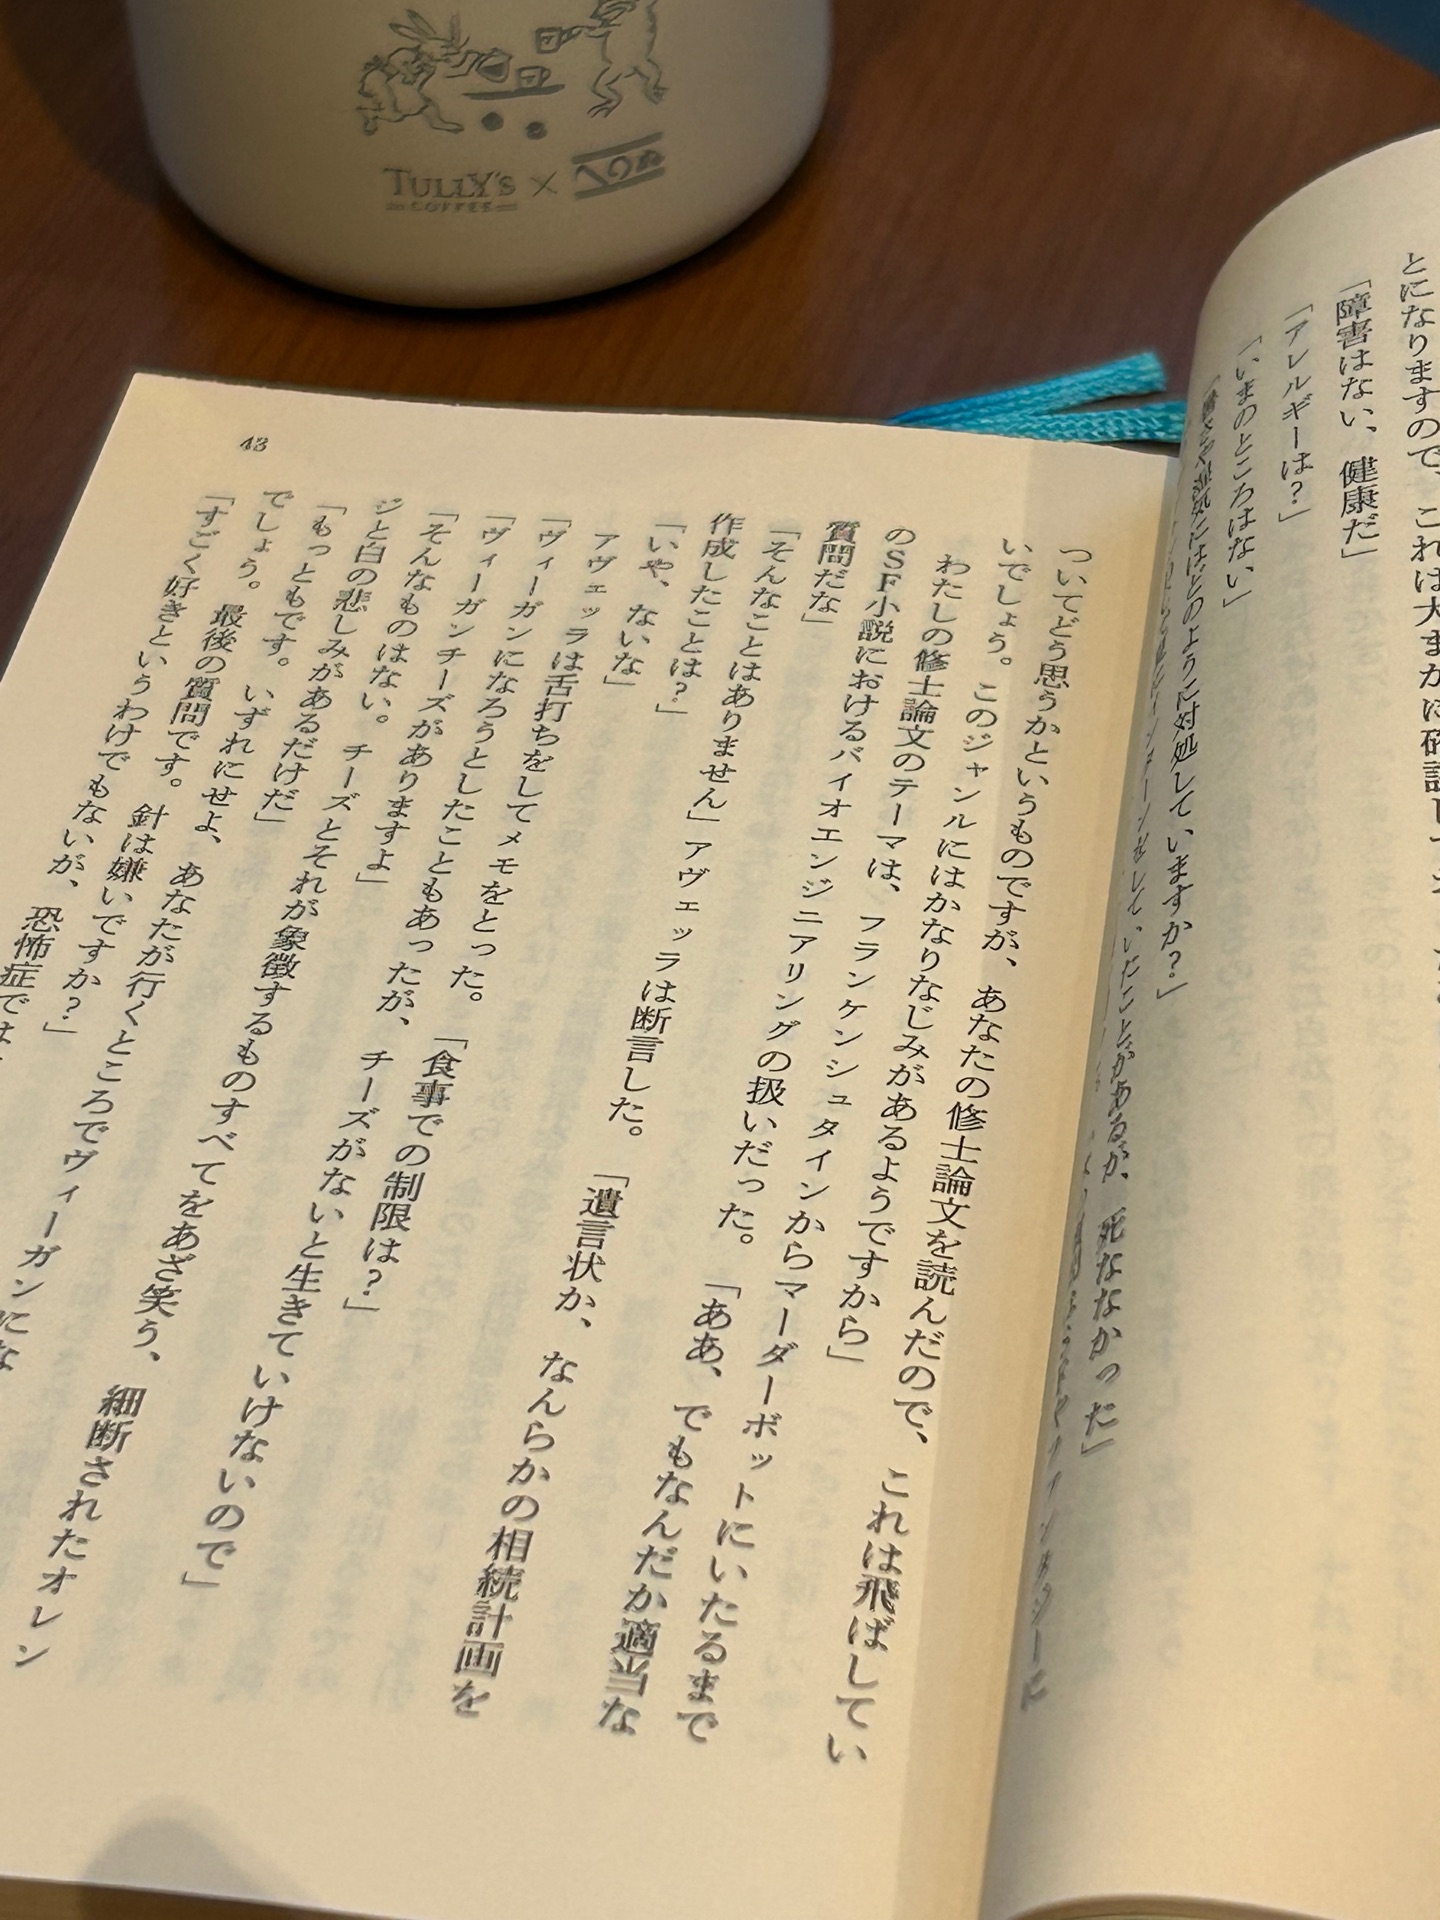 TULLY'S × 
COFFEE
とになりますので、これは大まかに確認
「障害はない、健康だ」
「アレルギーは？」
「いまのところはない」
「暑さや湿気にはどのように対処していますか？」
していたことがあるが、死ななかった」
ついてどう思うかというものですが、あなたの修士論文を読んだので、これは飛ばしてい
いでしょう。このジャンルにはかなりなじみがあるようですから」
わたしの修士論文のテーマは、フランケンシュタインからマーダーボットにいたるまで
のSF小説におけるバイオエンジニアリングの扱いだった。「ああ、でもなんだか適当な
質問だな」
「そんなことはありません」アヴェッラは断言した。「遺言状か、なんらかの相続計画を
作成したことは？」
「いや、ないな」
アヴェッラは舌打ちをしてメモをとった。「食事での制限は？」
「ヴィーガンになろうとしたこともあったが、チーズがないと生きていけないので」
「ヴィーガンチーズがありますよ」
「そんなものはない。チーズとそれが象徴するものすべてをあざ笑う、細断されたオレン
ジと白の悲しみがあるだけだ」
「もっともです。いずれにせよ、あなたが行くところでヴィーガンにな
でしょう。最後の質問です。針は嫌いですか？」
「すごく好きというわけでもないが、恐怖症では
43